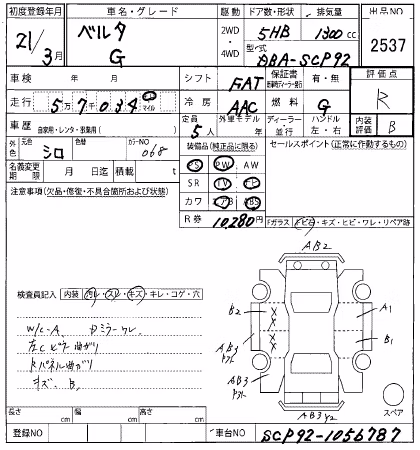 初度登録年月 車名・グレード 駆動 ドア数・形状 排気量 出品NO
21/3月 ベルタ G 2WD・4WD 5HB 1300cc 2537
型式 DBA-SCP92
車検 年 月 シフト FAT 保証書 有・無 評価点
走行 5万7034 km マイル 冷房 AAC 燃料 G R
車歴 自家用・レンタ・事業用( ) 定員 5人 外車モデル 年 ディーラー・並行 ハンドル 左・右 内装評価 B
外色 元色 シロ 色替 カラーNO 068 装備品(純正品に限る) セールスポイント(正常に作動するもの)
名義変更期限 月 日迄 積載 t
PS PW AW
SR TV ナビ
カワ エアB ABS
R券 10,280円
注意事項(欠品・修復・不具合箇所および状態)
Fガラス トビ石・キズ・ヒビ・ワレ・リペア跡
AB2
B2 A1
AB3 B1
AB3
AB3 Y2
スペア
検査員記入 内装 汚レ・スレ・キズ・キレ・コゲ・穴
W/C-A Dミラーワレ
左Cピラ曲がり
Rパネル曲がり
キズ B
長さ cm 幅 cm 高さ cm
登録NO 車台NO SCP92-1056787